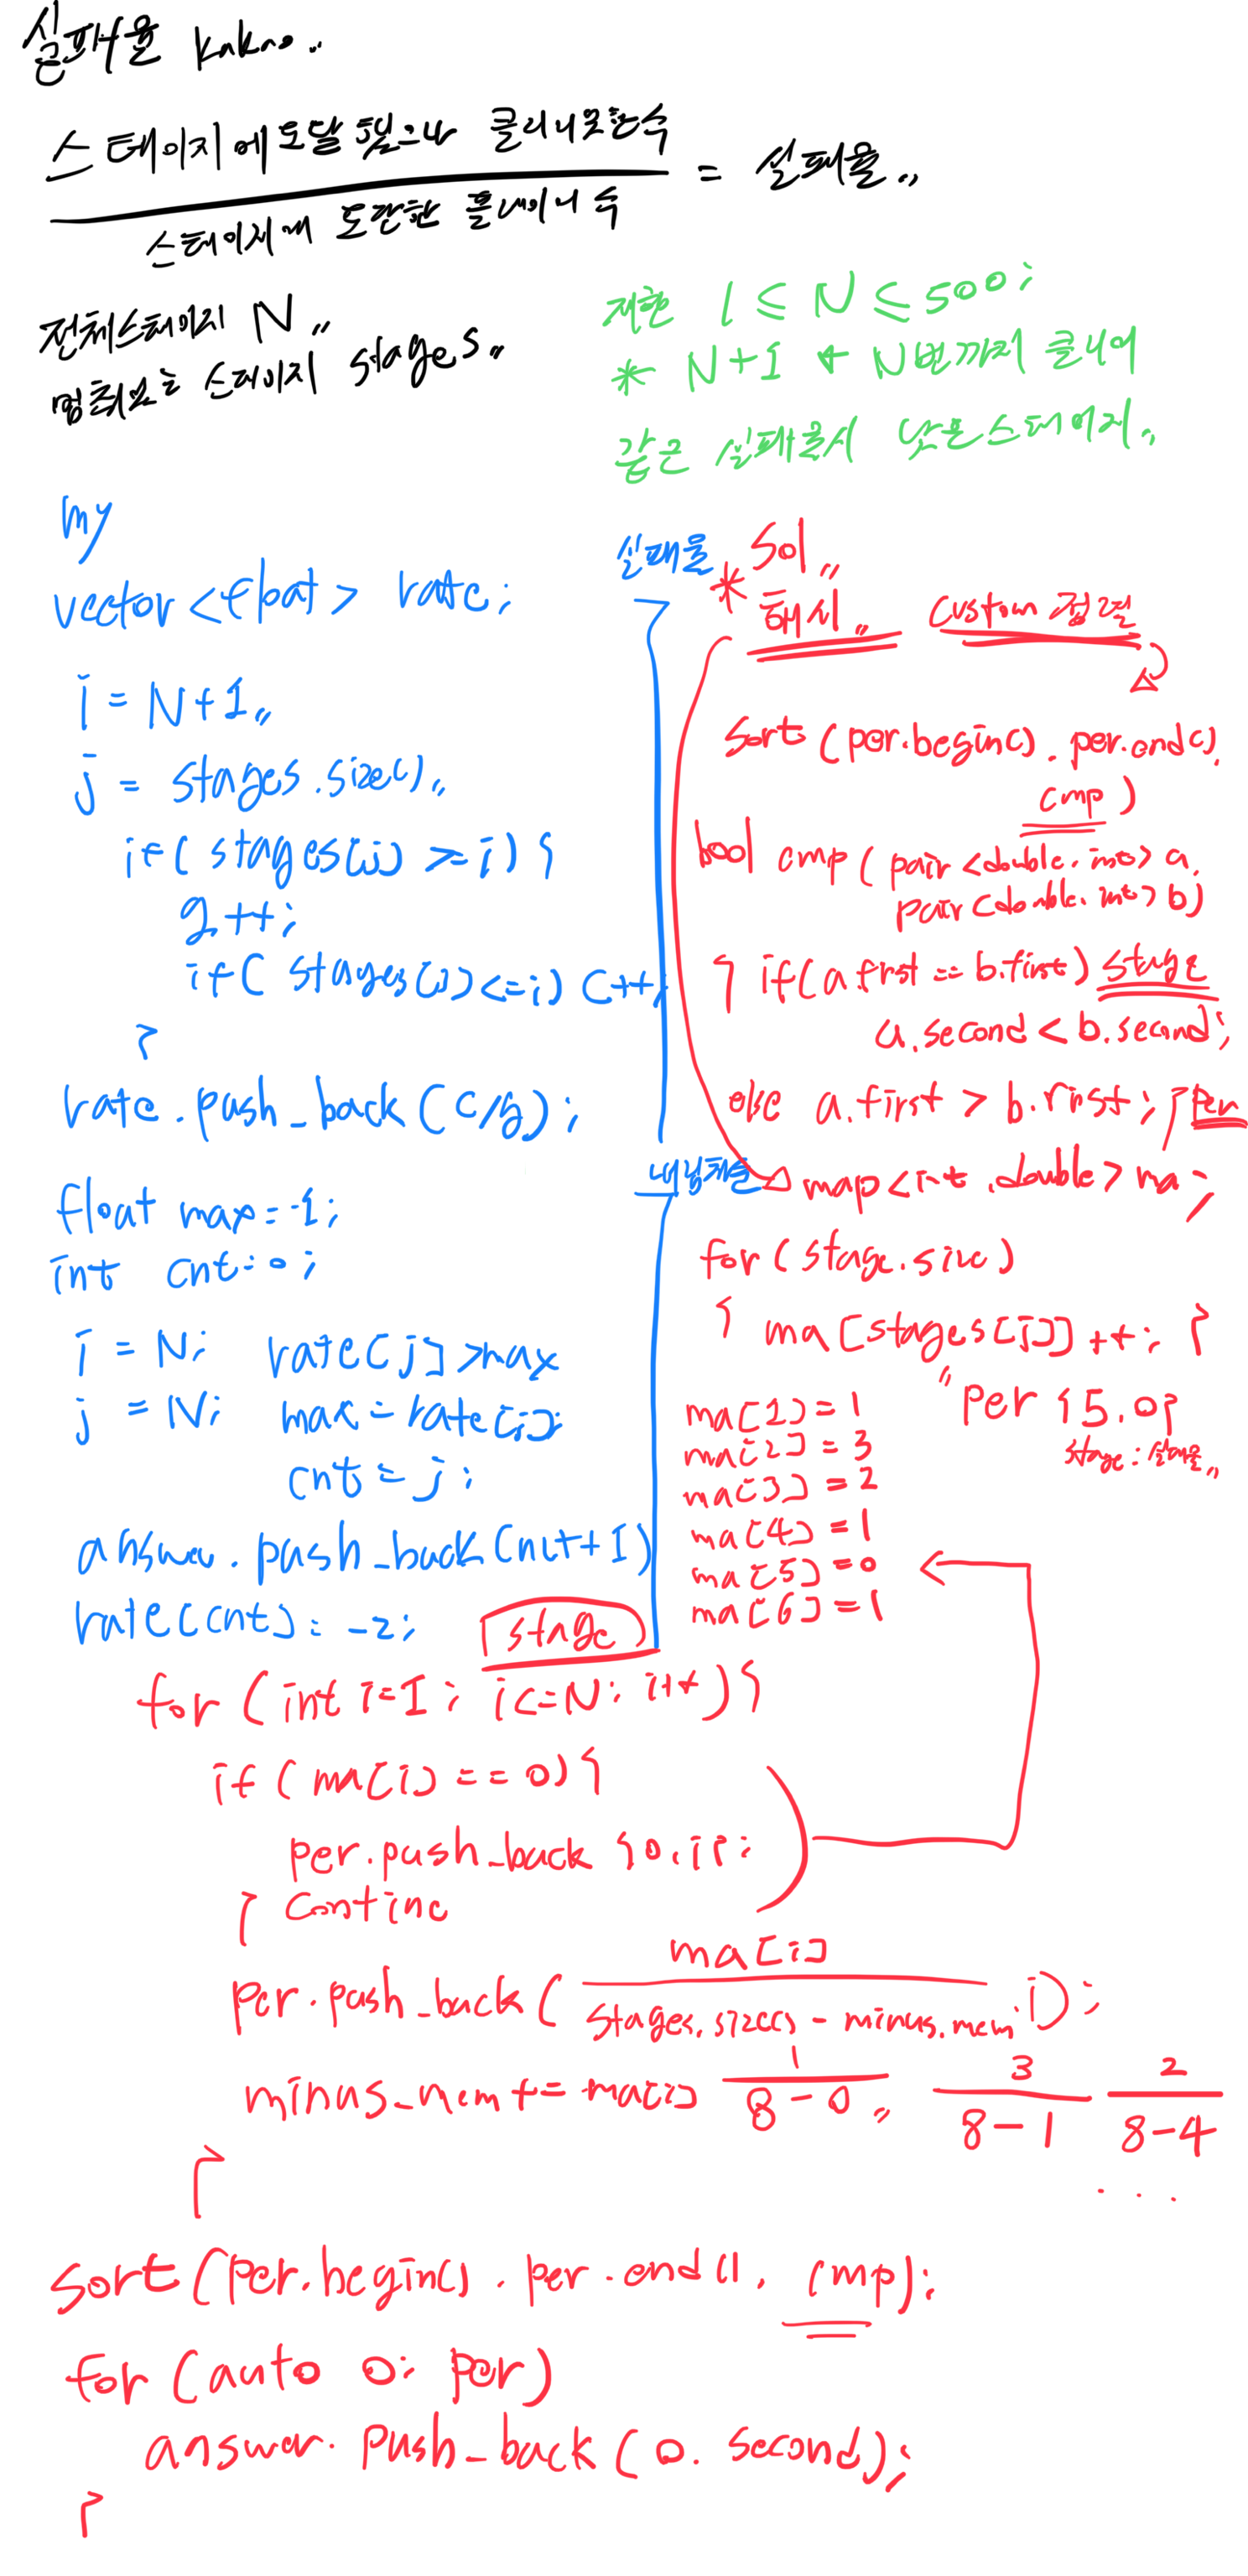 실패율 kakao..
스테이지에 도달 했으나 클리어 못한 수
= 실패율..
스테이지에 도달한 플레이어 수
전체스테이지 N..
멈춰있는 스테이지 stages..
제한 1 ≤ N ≤ 500;
* N+1 N번까지 클리어
같은 실패율시 낮은스테이지..
my
vector<float> rate;
i = N+1..
j = stages.size()..
if( stages[j] >= i) {
g++;
if( stages[j]<=i) c++;
}
rate.push_back(c/g);
실패율
float max=-1;
int cnt=0;
i = N; rate[j]>max
j = N; max=rate[j];
cnt=j;
answer.push_back(cnt+1)
rate[cnt]=-2;
내림차순
* Sol..
해시.. custom 정렬
sort(per.begin(). per.end().
cmp)
bool cmp(pair<double. int> a.
pair<double. int> b)
{ if(a.first == b.first) stage
a.second < b.second;
else a.first > b.first; } per
map<int .double> ma;
for(stage.size)
{ ma[stages[i]]++; }
" per {5.0}
stage:실패율..
ma[1]=1
ma[2]=3
ma[3]=2
ma[4]=1
ma[5]=0
ma[6]=1
stage
for(int i=1; i<=N; i++){
if(ma[i]==0){
per.push_back {0.i};
} contine
per.push_back( ma[i]
stages.size() - minus.mem . i);
minus_mem += ma[i] 1 3 2
8-0.. 8-1 8-4
...
}
sort(per.begin(). per.end(). cmp);
for(auto o: per)
answer. push_back(o. second);
}